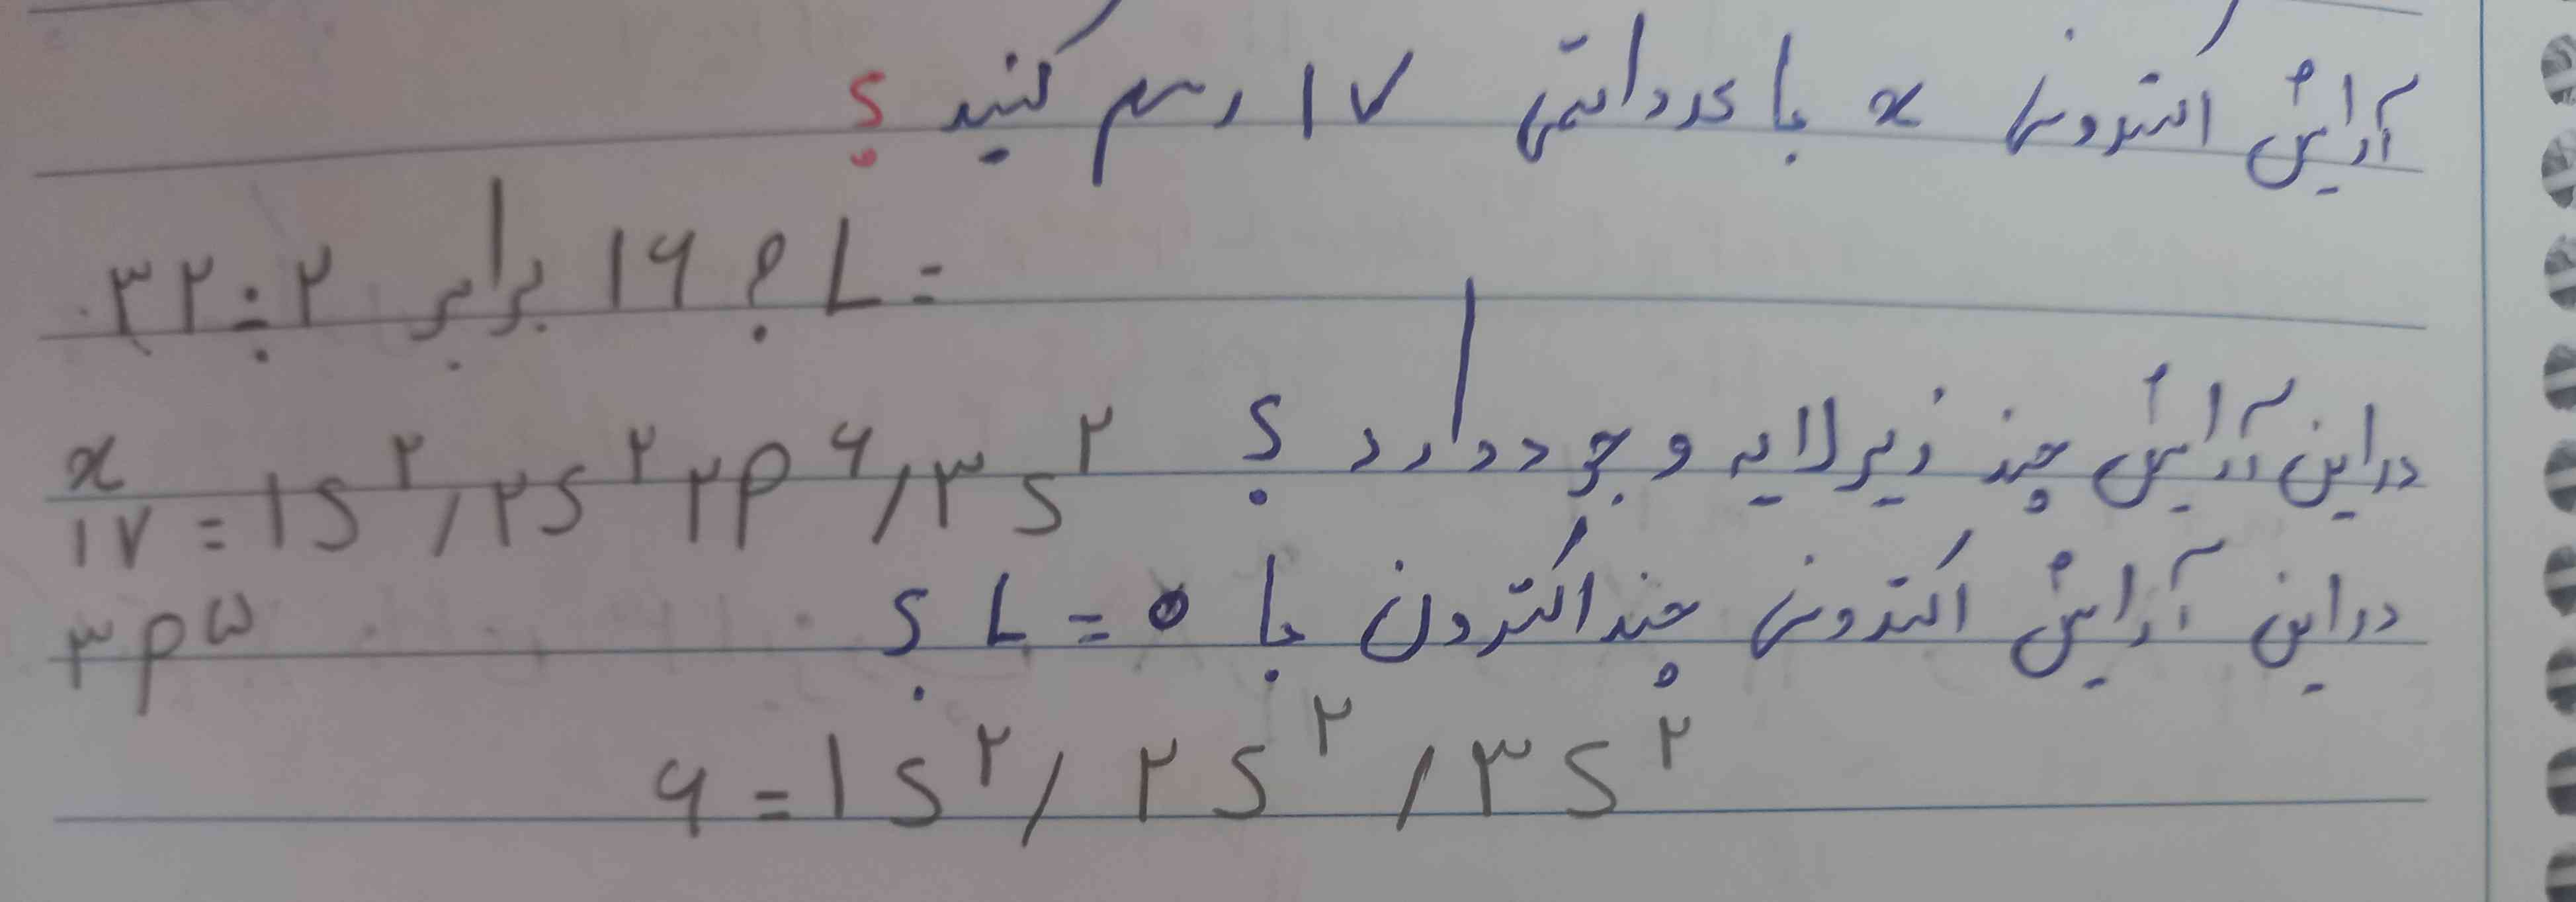 آرایش الکترونی x با عدد اتمی ۱۷ رسم کنید؟
= L ؟ ۱۶ برابر ۲ ÷ ۳۲
در این آرایش چند زیر لایه وجود دارد؟ x/۱۷ = ۱s^۲/۲s^۲ ۲p^۶/۳s^۲
در این آرایش الکترونی چند الکترون با L = ۰؟ ۳p۵
۶ = ۱s^۲/۲s^۲/۳s^۲